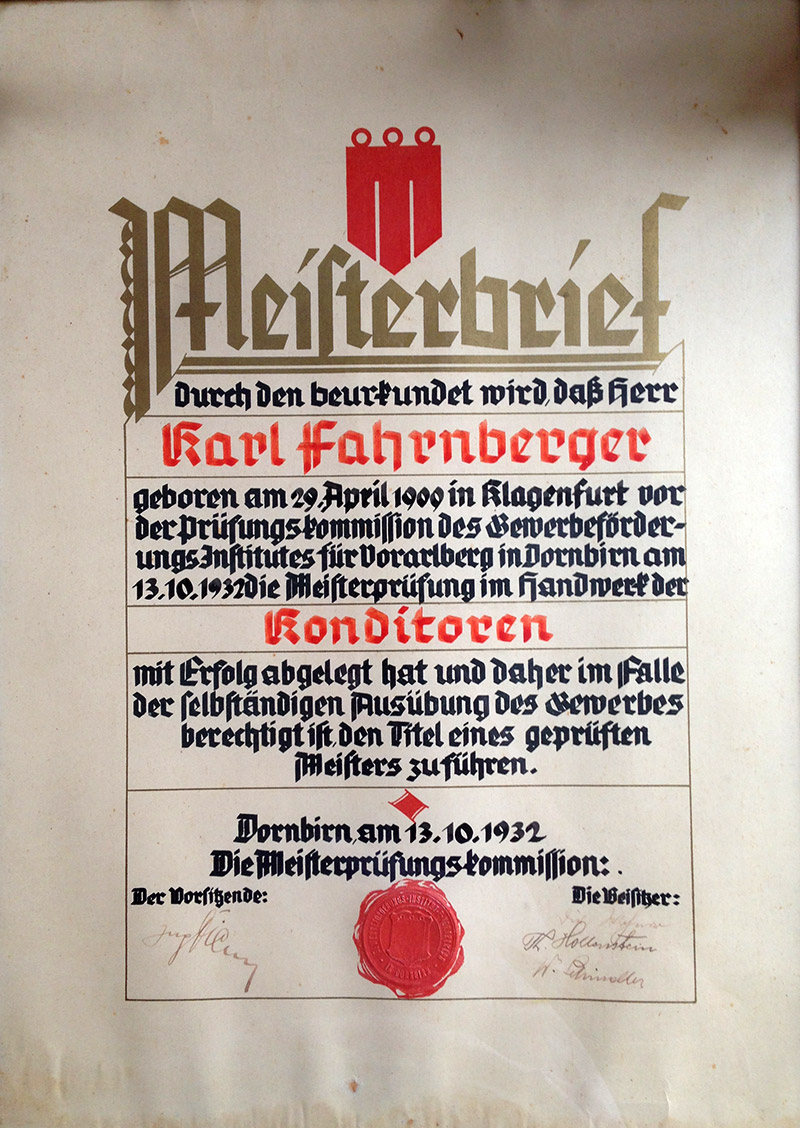 Meisterbrief
durch den beurkundet wird, daß Herr
Karl Fahrnberger
geboren am 29. April 1909 in Klagenfurt vor
der Prüfungskommission des Gewerbeförder-
ungs Institutes für Vorarlberg in Dornbirn am
13.10.1932 die Meisterprüfung im Handwerk der
Konditoren
mit Erfolg abgelegt hat und daher im Falle
der selbständigen Ausübung des Gewerbes
berechtigt ist, den Titel eines geprüften
Meisters zu führen.
Dornbirn, am 13.10.1932
Die Meisterprüfungskommission:
Der Vorsitzende:
Die Beisitzer:
Th. Hollenstein
W. Schindler